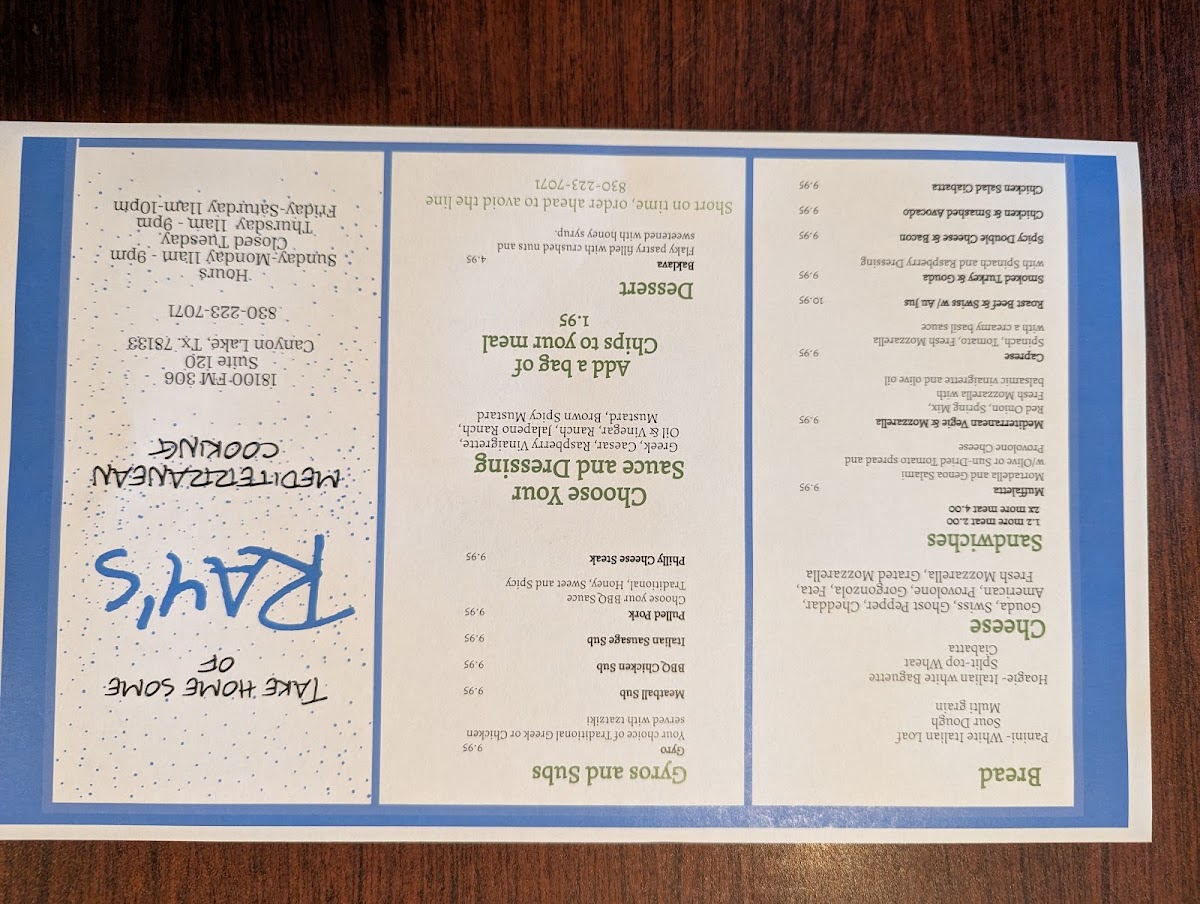 Bread
Panini- White Italian Loaf
Sour Dough
Multi grain
Hoagie- Italian white Baguette
Split-top- Wheat
Ciabatta
Cheese
Gouda, Swiss, Ghost Pepper, Cheddar,
American, Provolone, Gorgonzola, Feta,
Fresh Mozzarella, Grated Mozzarella
Sandwiches
1.2 more meat 2.00
2x more meat 4.00
Muffaletta 9.95
Mortadella and Genoa Salami
w/Olive or Sun-Dried Tomato spread and
Provolone Cheese
Mediterranean Vegie & Mozzarella 9.95
Red Onion, Spring Mix,
Fresh Mozzarella with
balsamic vinaigrette and olive oil
Caprese 9.95
Spinach, Tomato, Fresh Mozzarella
with a creamy basil sauce
Roast Beef & Swiss w/ Au Jus 10.95
Smoked Turkey & Gouda 9.95
with Spinach and Raspberry Dressing
Spicy Double Cheese & Bacon 9.95
Chicken & Smashed Avocado 9.95
Chicken Salad Ciabatta 9.95
Gyros and Subs
Gyro 9.95
Your choice of Traditional of Greek or Chicken
served with tzatziki
Meatball Sub 9.95
BBQ Chicken Sub 9.95
Italian Sausage Sub 9.95
Pulled Pork 9.95
Choose your BBQ Sauce
Traditional, Honey, Sweet and Spicy
Philly Cheese Steak 9.95
Choose Your
Sauce and Dressing
Greek, Caesar, Raspberry Vinaigrette,
Oil & Vinegar, Ranch, Jalapeno Ranch,
Mustard, Brown Spicy Mustard
Add a bag of
Chips to your meal
1.95
Dessert
Baklava 4.95
Flaky pastry filled with crushed nuts and
sweetened with honey syrup.
Short on time, order ahead to avoid the line
830-223-7071
TAKE HOME SOME
OF
RAY'S
MEDITERRANEAN
COOKING
18100 FM 306
Suite 120
Canyon Lake, Tx. 78133
830-223-7071
Hours
Sunday-Monday 11am - 9pm
Closed Tuesday
Thursday 11am- 9pm
Friday-Saturday 11am-10pm